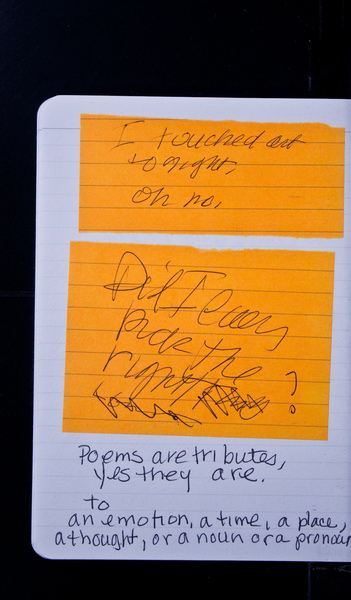 I touched art
tonight,
oh no,
Did I even
pick the
right ?
Poems are tributes,
yes they are.
to
an emotion, a time, a place,
a thought, or a noun or a pronoun